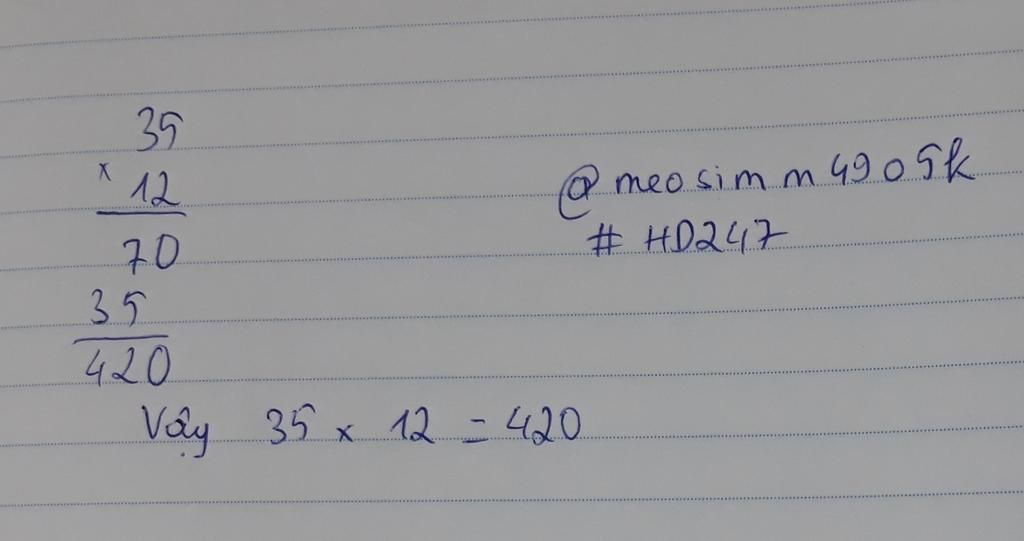 35
× 12
70
35
420
Vậy 35 × 12 = 420
@meosimm4905k
#HD247